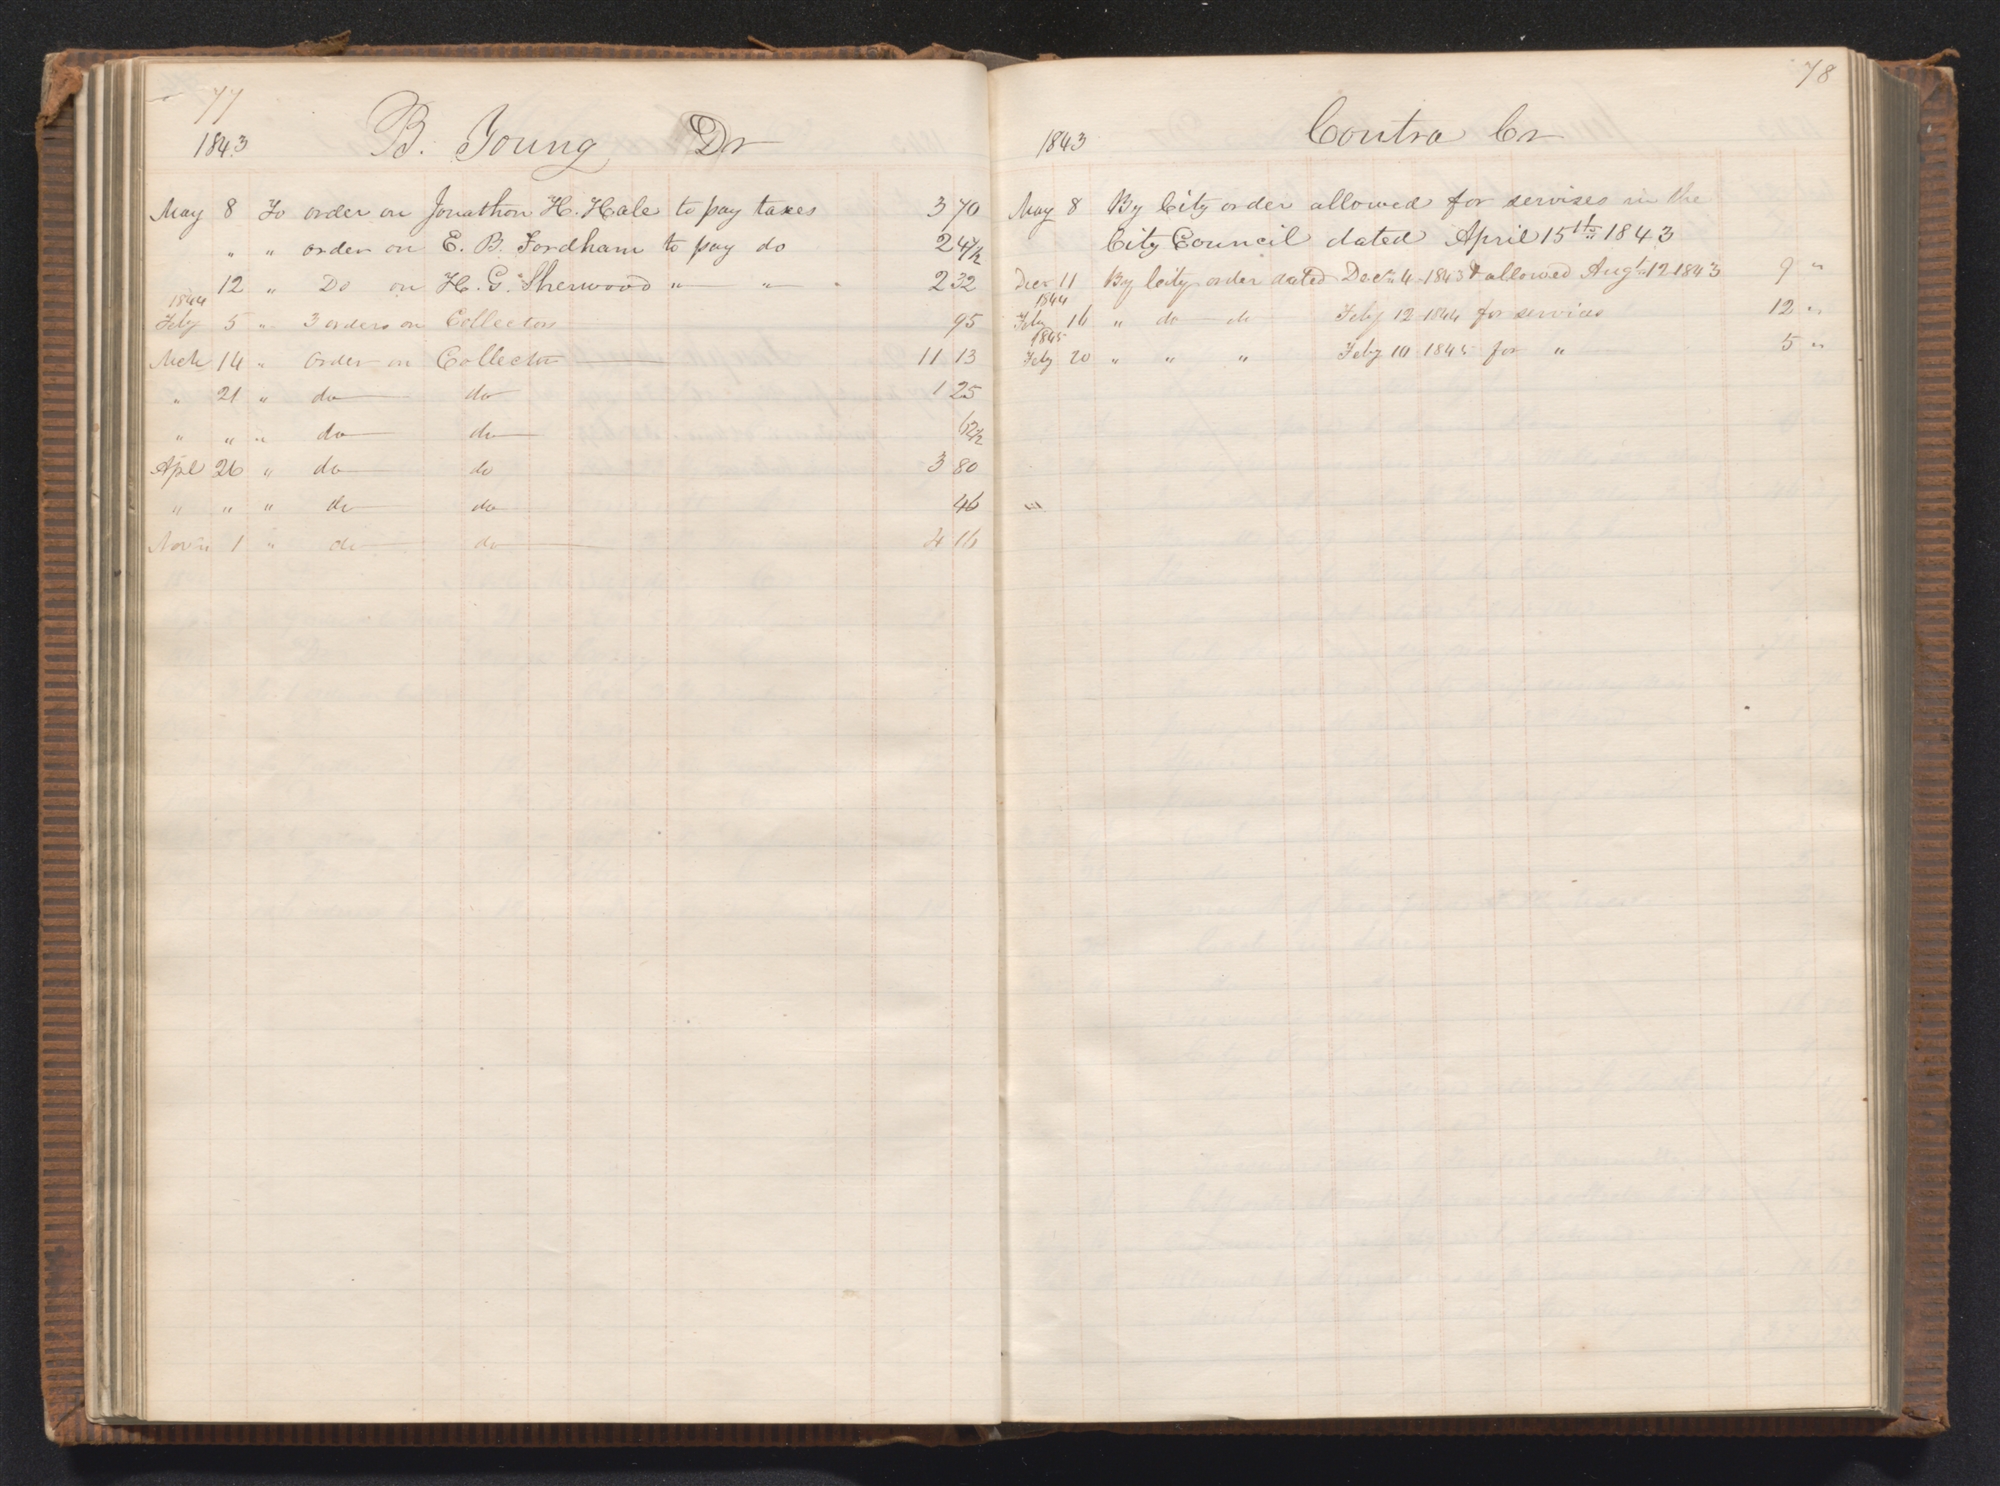 77
1843 B. Young Dr
May 8 To order on Jonathon H. Hale to pay taxes 3 70
" " order on E. B. Fordham to pay do 2 47½
12 " Do on H. G. Sherwood " " " 2 32
1844
Feby 5 " 3 orders on Collector 95
Mch 14 " Order on Collector 11 13
" 21 " do do 1 25
" " " do do 62½
Apl 26 " do do 3 80
" " " do do 46
Novr 1 " do do 4 16
78
1843 Contra Cr
May 8 By City order allowed for servises in the
City Council dated April 15th 1843
Decr 11 By City order dated Decr 4 1843 & allowed Augt 12 1843 9 "
1844
Feby 16 " do do Feby 12 1844 for services 12 "
1845
Feby 20 " " " Feby 10 1845 for " 5 "